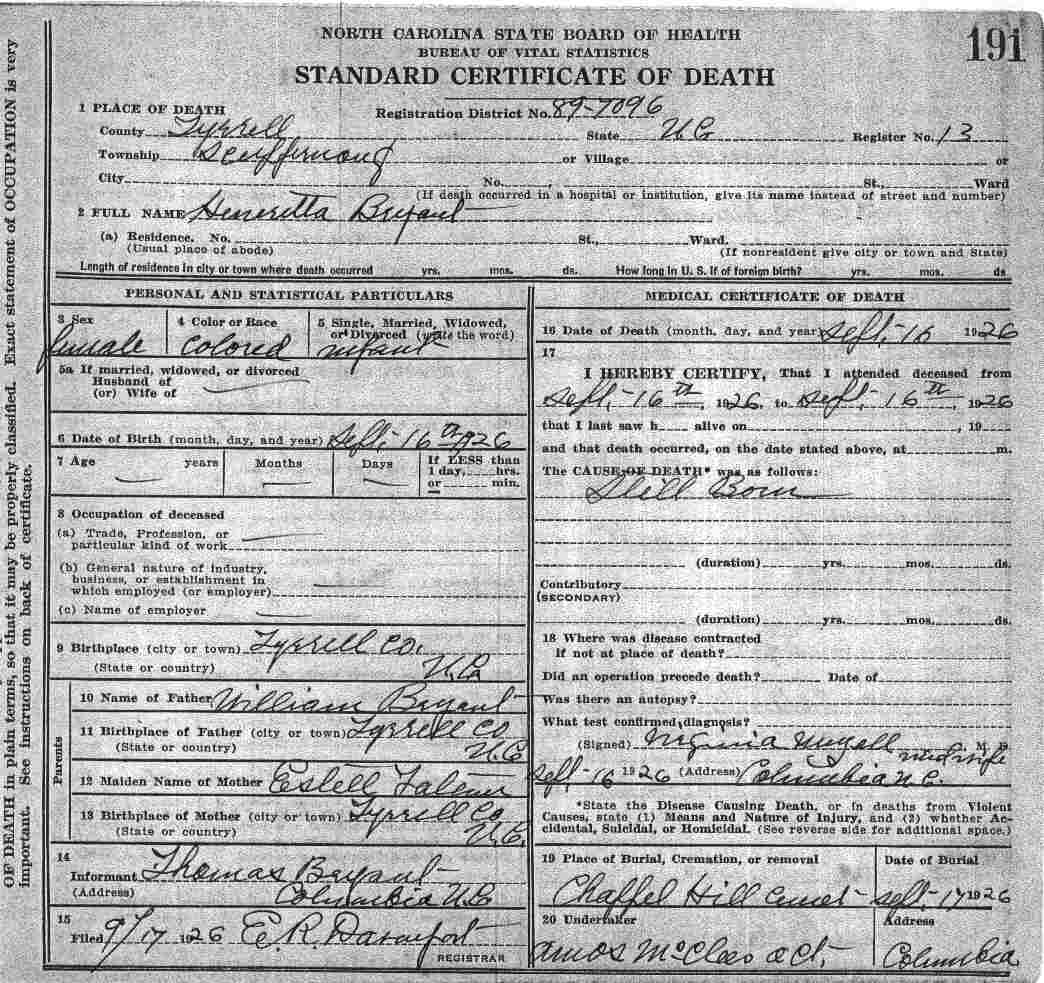 191
NORTH CAROLINA STATE BOARD OF HEALTH
BUREAU OF VITAL STATISTICS
STANDARD CERTIFICATE OF DEATH
1 PLACE OF DEATH
Registration District No. 89-7096
County Tyrrell State N C Register No. 13
Township Scuppernong or Village or
City No. , St., Ward
(If death occurred in a hospital or institution, give its name instead of street and number)
2 FULL NAME Heneretta Bryant
(a) Residence. No. St., Ward.
(Usual place of abode) (If nonresident give city or town and State)
Length of residence in city or town where death occurred yrs. mos. ds. How long in U. S. if of foreign birth? yrs. mos. ds
PERSONAL AND STATISTICAL PARTICULARS
3 Sex 4 Color or Race 5 Single, Married, Widowed,
or Divorced (write the word)
female colored infant
5a If married, widowed, or divorced
Husband of
(or) Wife of
6 Date of Birth (month, day, and year) Sept, 16th 1926
7 Age years Months Days If LESS than
1 day, hrs.
or min.
8 Occupation of deceased
(a) Trade, Profession, or
particular kind of work
(b) General nature of industry,
business, or establishment in
which employed (or employer)
(c) Name of employer
9 Birthplace (city or town) Tyrrell Co.
(State or country) N.C.
Parents
10 Name of Father William Bryant
11 Birthplace of Father (city or town) Tyrrell Co
(State or country) N.C.
12 Maiden Name of Mother Estell
13 Birthplace of Mother (city or town) Tyrrell Co
(State or country) N.C.
14
Informant Thomas Bryant
(Address) Columbia N C
15
Filed 9/17 1926 E. R. Davenport
REGISTRAR
MEDICAL CERTIFICATE OF DEATH
16 Date of Death (month, day, and year) Sept, 16 1926
17
I HEREBY CERTIFY, That I attended deceased from
Sept, 16th, 1926, to Sept, 16th, 1926
that I last saw h alive on , 19
and that death occurred, on the date stated above, at m.
The CAUSE OF DEATH* was as follows:
Still Born
(duration) yrs. mos. ds.
Contributory
(SECONDARY)
(duration) yrs. mos. ds.
18 Where was disease contracted
if not at place of death?
Did an operation precede death? Date of
Was there an autopsy?
What test confirmed diagnosis?
(Signed) Virginia midwife M. D.
Sept 16 1926 (Address) Columbia N.C.
*State the Disease Causing Death, or in deaths from Violent
Causes, state (1) Means and Nature of Injury, and (2) whether Ac-
cidental, Suicidal, or Homicidal. (See reverse side for additional space.)
19 Place of Burial, Cremation, or removal Date of Burial
Chappel Hill Cemet Sept. 17 1926
20 Undertaker Address
Amos act. Columbia
OF DEATH in plain terms, so that it may be properly classified. Exact statement of OCCUPATION is very
important. See instructions on back of certificate.